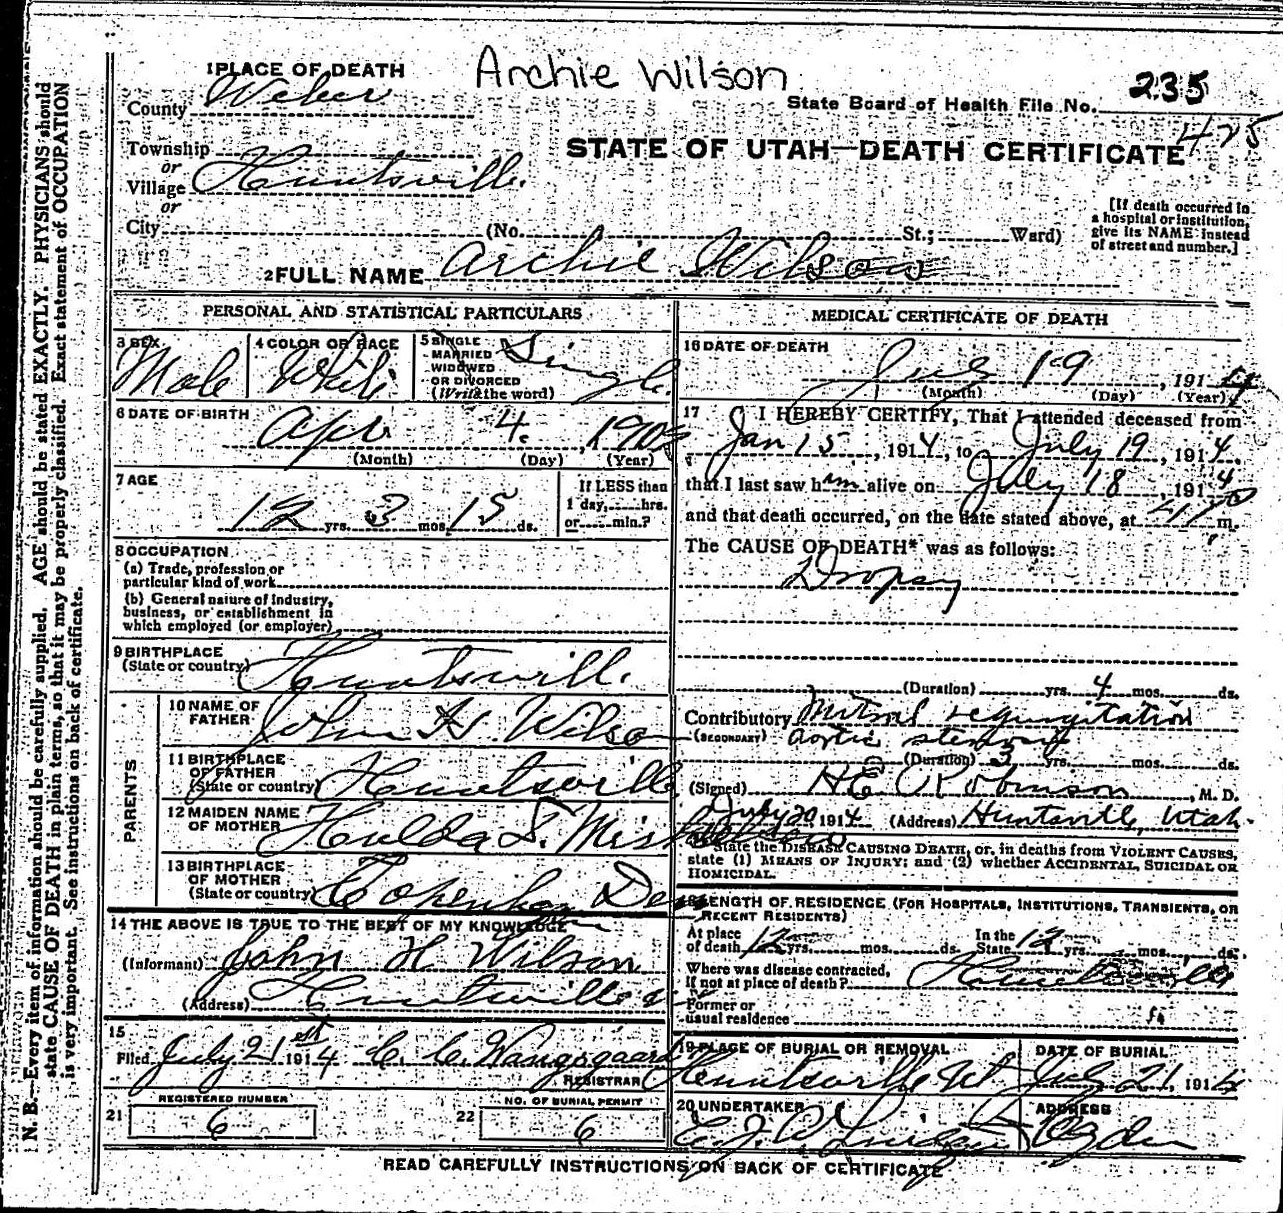 Archie Wilson
1 PLACE OF DEATH
County Weber
State Board of Health File No. 235
475
Township
or
Village Huntsville.
or
STATE OF UTAH—DEATH CERTIFICATE
City (No. St.; Ward)
[If death occurred in
a hospital or institution,
give its NAME instead
of street and number.]
2 FULL NAME Archie Wilson
PERSONAL AND STATISTICAL PARTICULARS
3 SEX Male
4 COLOR OR RACE White
5 SINGLE
MARRIED
WIDOWED
OR DIVORCED
(Write the word) Single
6 DATE OF BIRTH
Apr 4.
(Month) (Day) (Year)
7 AGE
12 yrs. 3 mos. 15 ds.
If LESS than
1 day, hrs.
or min.?
8 OCCUPATION
(a) Trade, profession or
particular kind of work
(b) General nature of industry,
business, or establishment in
which employed (or employer)
9 BIRTHPLACE
(State or country) Huntsville.
PARENTS
10 NAME OF
FATHER John H. Wilson
11 BIRTHPLACE
OF FATHER
(State or country) Huntsville
12 MAIDEN NAME
OF MOTHER Hulda S.
13 BIRTHPLACE
OF MOTHER
(State or country) Copenhagen Den
14 THE ABOVE IS TRUE TO THE BEST OF MY KNOWLEDGE
(Informant) John H Wilson
(Address) Huntsville
15
Filed July 21st 1914 C. C. Wangsgaard
REGISTRAR
REGISTERED NUMBER
21 6
NO. OF BURIAL PERMIT
22 6
MEDICAL CERTIFICATE OF DEATH
16 DATE OF DEATH
July 19, 1914
(Month) (Day) (Year)
17 I HEREBY CERTIFY, That I attended deceased from
Jan 15, 1914, to July 19, 1914,
that I last saw him alive on July 18, 1914
and that death occurred, on the date stated above, at m.
The CAUSE OF DEATH* was as follows:
Dropsy
(Duration) yrs. 4 mos. ds.
Contributory Mitral regurgitation
(SECONDARY) aortic stenosis
(Duration) 3 yrs. mos. ds.
(Signed) H C Robinson, M. D.
July 20 1914 (Address) Huntsville, Utah.
*State the DISEASE CAUSING DEATH, or, in deaths from VIOLENT CAUSES,
state (1) MEANS OF INJURY; and (2) whether ACCIDENTAL, SUICIDAL OR
HOMICIDAL.
18 LENGTH OF RESIDENCE (FOR HOSPITALS, INSTITUTIONS, TRANSIENTS, OR
RECENT RESIDENTS)
At place
of death 12 yrs. mos. ds.
In the
State 12 yrs. mos. ds.
Where was disease contracted,
If not at place of death? Huntsville
Former or
usual residence
19 PLACE OF BURIAL OR REMOVAL
Huntsville Ut.
DATE OF BURIAL
July 21, 1914
20 UNDERTAKER
ADDRESS
Ogden
READ CAREFULLY INSTRUCTIONS ON BACK OF CERTIFICATE
N. B.—Every item of information should be carefully supplied. AGE should be stated EXACTLY. PHYSICIANS should
state CAUSE OF DEATH in plain terms, so that it may be properly classified. Exact statement of OCCUPATION
is very important. See instructions on back of certificate.